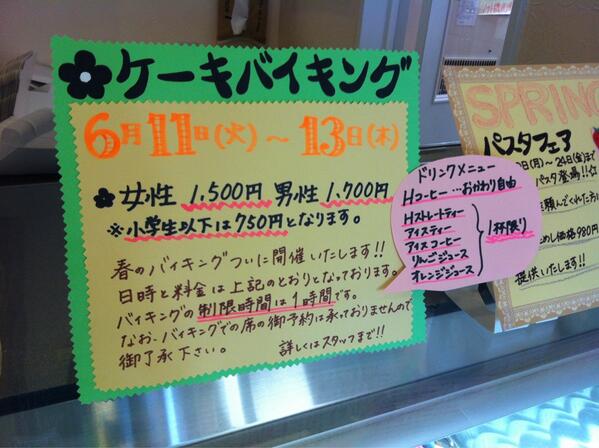 ケーキバイキング
6月11日(火)～13日(木)
女性 1,500円 男性 1,700円
※小学生以下は750円となります。
春のバイキングついに開催いたします!!
日時と料金は上記のとおりとなっております。
バイキングの制限時間は1時間です。
なお、バイキングでの席の御予約は承っておりませんので
御了承下さい。 詳しくはスタッフまで!!
ドリンクメニュー
Hコーヒー…おかわり自由
Hストレートティー
アイスティー
アイスコーヒー
りんごジュース
オレンジジュース
1杯限り
SPRING
パスタフェア
日(月)～24日(金)まで
パスタ登場!!☆
頼んでくれた方に
価格980円
提供いたします!!